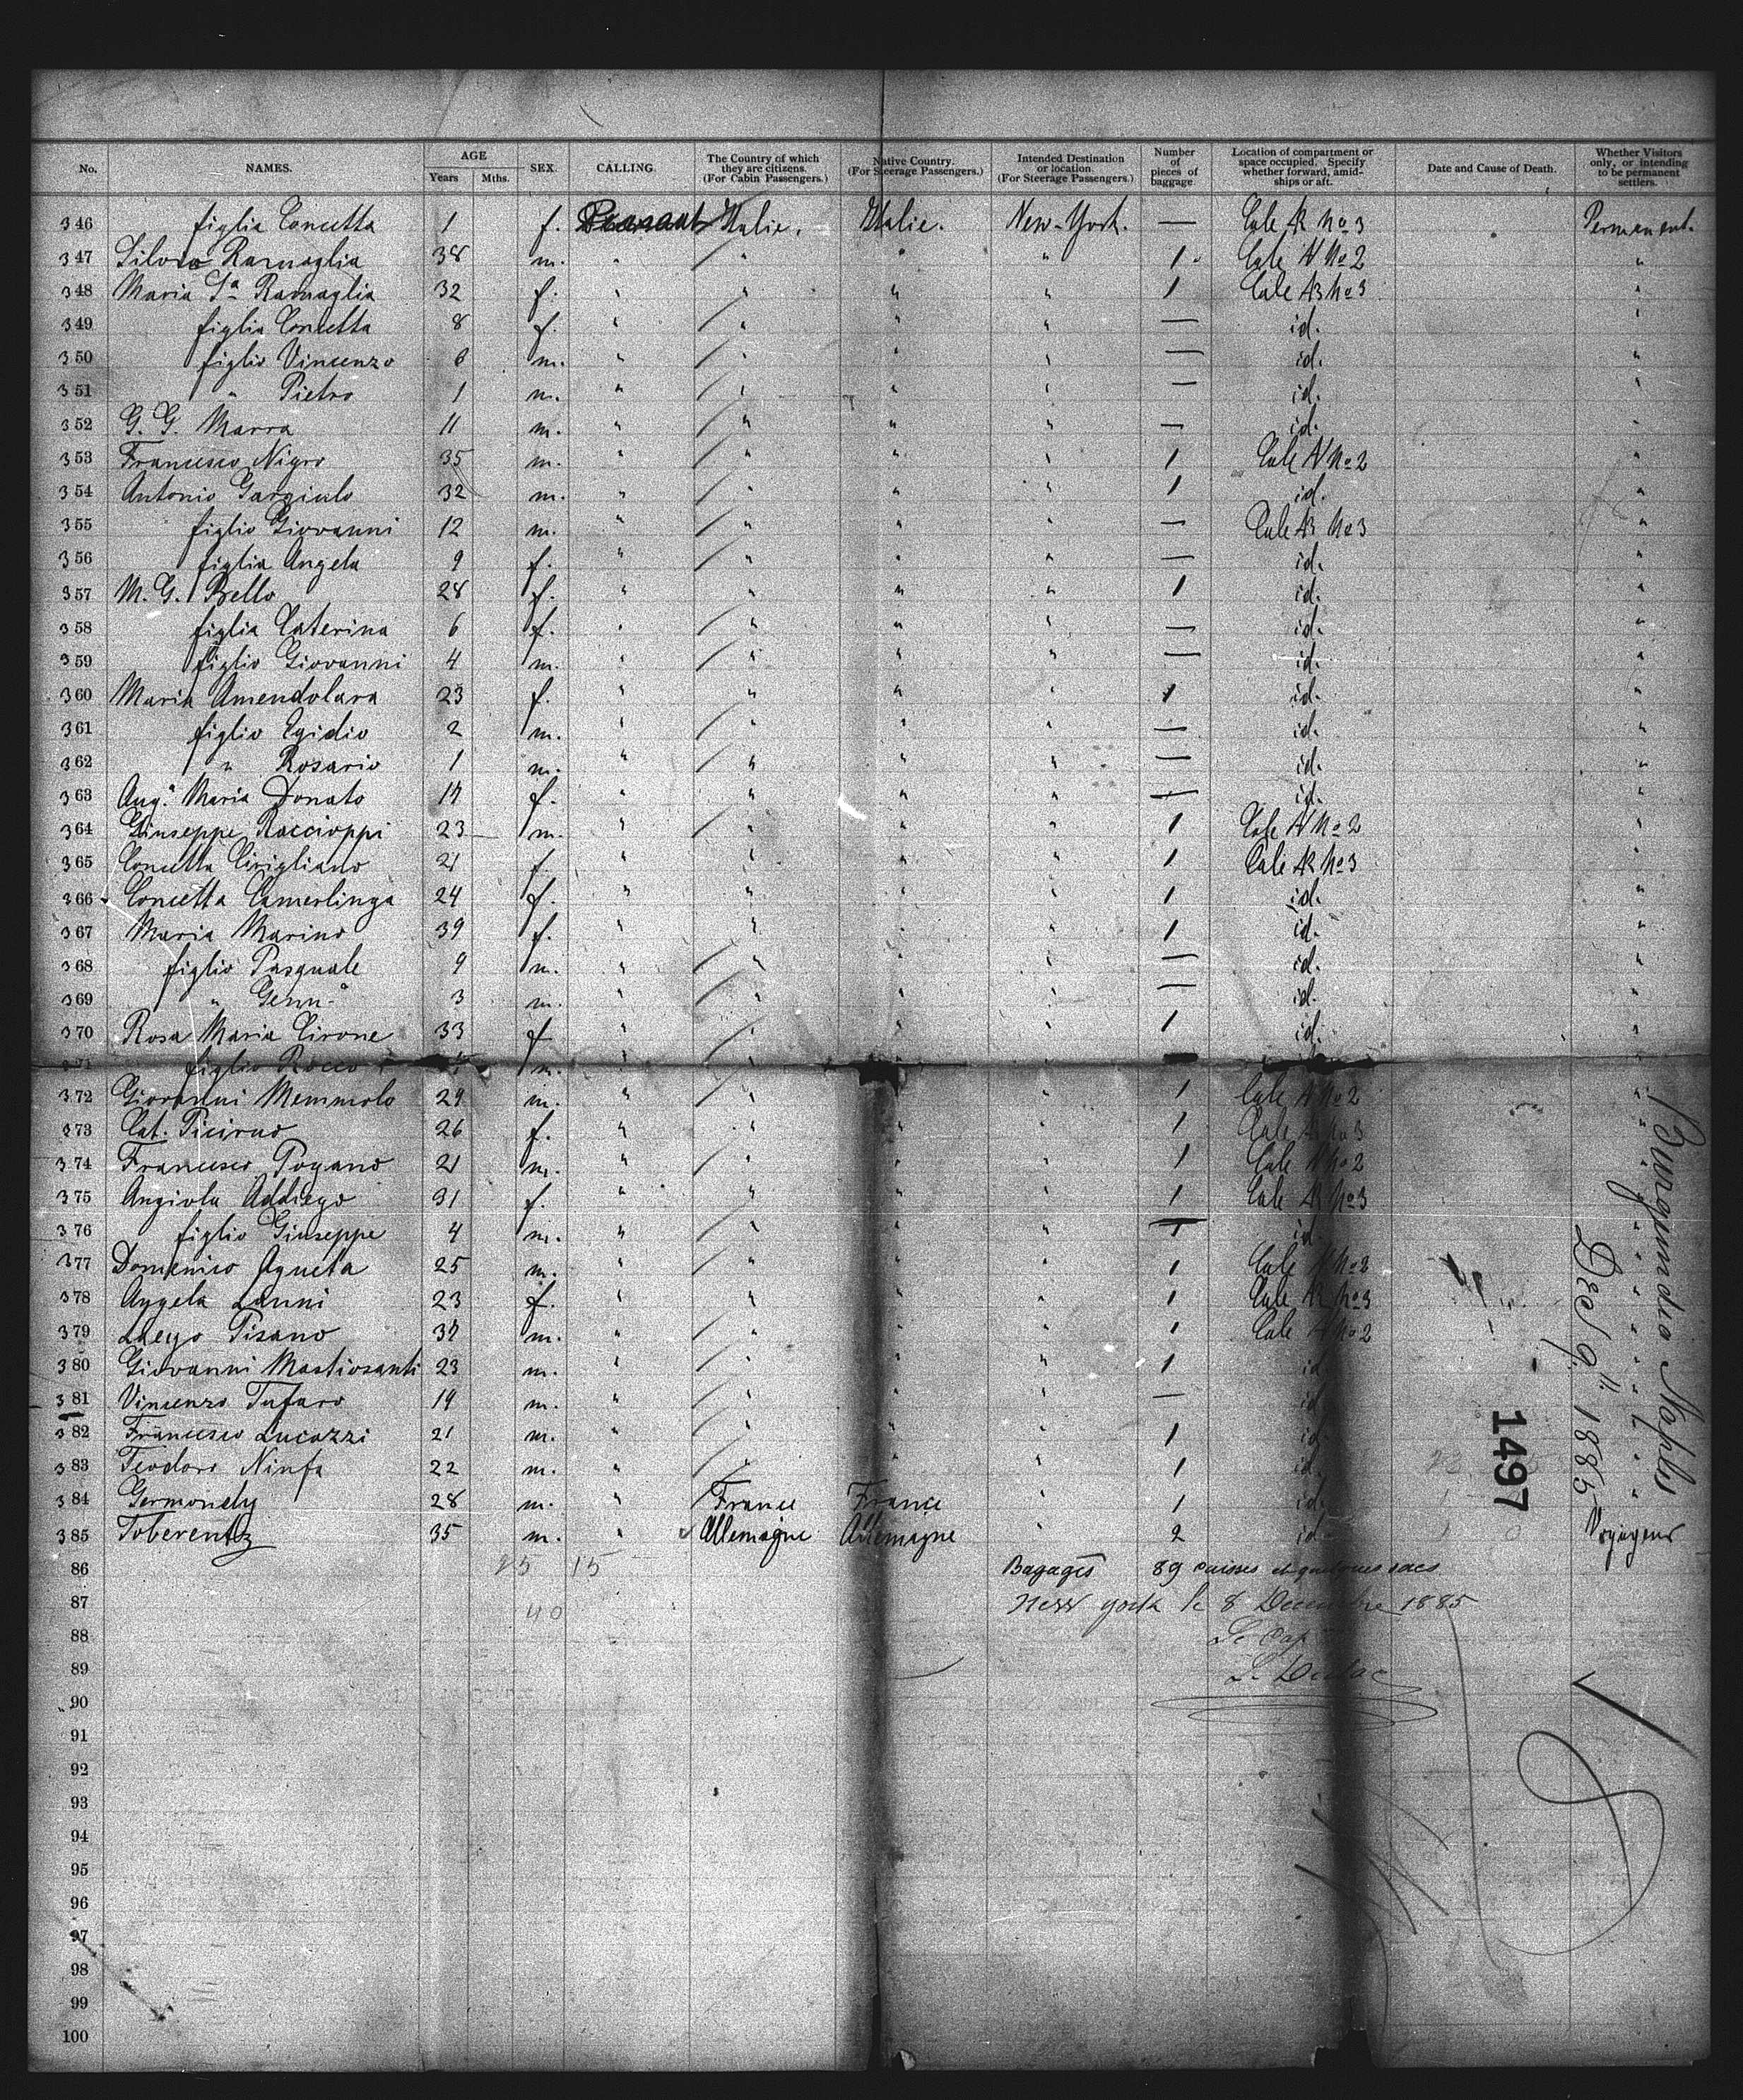 No. NAMES. AGE Years Mths. SEX. CALLING. The Country of which they are citizens. (For Cabin Passengers.) Native Country. (For Steerage Passengers.) Intended Destination or location. (For Steerage Passengers.) Number of pieces of baggage Location of compartment or space occupied. Specify whether forward, amidships or aft. Date and Cause of Death. Whether Visitors only, or intending to be permanent settlers.
346 figlia Concetta 1 f. Italie. Italie. New-York. — Cale AR No 3 Permanent.
347 Ramaglia 38 m. " " " " 1 Cale AV No 2 "
348 Maria Ramaglia 32 f. " " " " 1 Cale AR No 3 "
349 figlia Concetta 8 f. " " " " — id. "
350 figlio Vincenzo 6 m. " " " " — id. "
351 " Pietro 1 m. " " " " — id. "
352 G. G. Marra 11 m. " " " " — id. "
353 Francesco Nigro 35 m. " " " " 1 Cale AV No 2 "
354 Antonio Gargiulo 32 m. " " " " 1 id. "
355 figlio Giovanni 12 m. " " " " — Cale AR No 3 "
356 figlia Angela 9 f. " " " " — id. "
357 M. G. Bello 28 f. " " " " 1 id. "
358 figlia Caterina 6 f. " " " " — id. "
359 figlio Giovanni 4 m. " " " " — id. "
360 Maria Amendolara 23 f. " " " " 1 id. "
361 figlio Egidio 2 m. " " " " — id. "
362 " Rosario 1 m. " " " " — id. "
363 Ang.a Maria Donato f. " " " " — id. "
364 Giuseppe Raccioppi 23 m. " " " " 1 Cale AV No 2 "
365 Concetta Cirigliano 21 f. " " " " 1 Cale AR No 3 "
366 Concetta Camerlinga 24 f. " " " " 1 id. "
367 Maria Marino 39 f. " " " " 1 id. "
368 figlio Pasquale 9 m. " " " " — id. "
369 " Genn.o 3 m. " " " " — id. "
370 Rosa Maria Cirone 33 f. " " " " 1 id. "
figlio Rocco m.
372 Giovanni Memmolo 29 m. " " " " 1 Cale AV No 2 "
373 Cat. 26 f. " " " " 1 Cale AR No 3 "
374 Francesco Pogano 21 m. " " " " 1 Cale AV No 2 "
375 Angiola Addiego 31 f. " " " " 1 Cale AR No 3 "
376 figlio Giuseppe 4 m. " " " " id. "
377 Domenico Agueta 25 m. " " " " 1 Cale AV No 2 "
378 Angela Lanni 23 f. " " " " 1 Cale AR No 3 "
379 Pisano m. " " " " 1 Cale AV No 2 "
380 Giovanni Mastiosanti 23 m. " " " " 1 id. "
381 Vincenzo Tufaro 19 m. " " " " — id. "
382 Francesco Lucazzi 21 m. " " " " 1 id. "
383 Teodoro Ninfa 22 m. " " " " 1 id. "
384 Germondy 28 m. " France France " 1 id. "
385 Toberentz 35 m. " Allemagne Allemagne " 2 id. Voyageur
86 25 15 Bagages 89 caisses et quelques sacs
87 40 New york le 8 Decembre 1885
88 Le Cap
89 L. Dulac
90
91
92
93
94
95
96
97
98
99
100
Burgundia Naples
Dec 9" 1885
1497